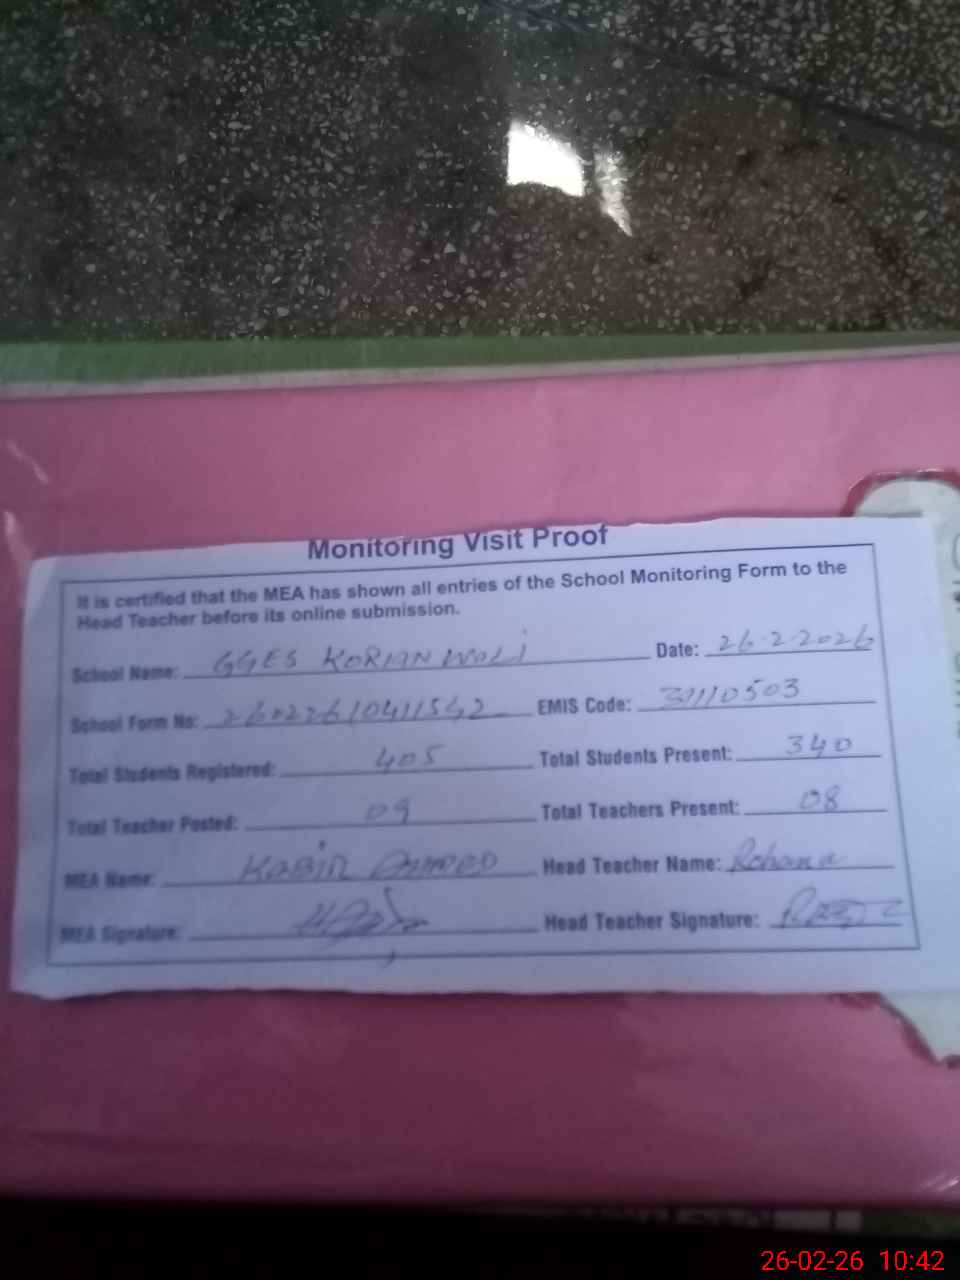 Monitoring Visit Proof
It is certified that the MEA has shown all entries of the School Monitoring Form to the
Head Teacher before its online submission.
School Name: GGES KORIAN WALI Date: 26-2-2026
School Form No: EMIS Code:
Total Students Registered: 405 Total Students Present: 340
Total Teacher Posted: 09 Total Teachers Present: 08
MEA Name: Head Teacher Name:
MEA Signature: Head Teacher Signature:
26-02-26 10:42